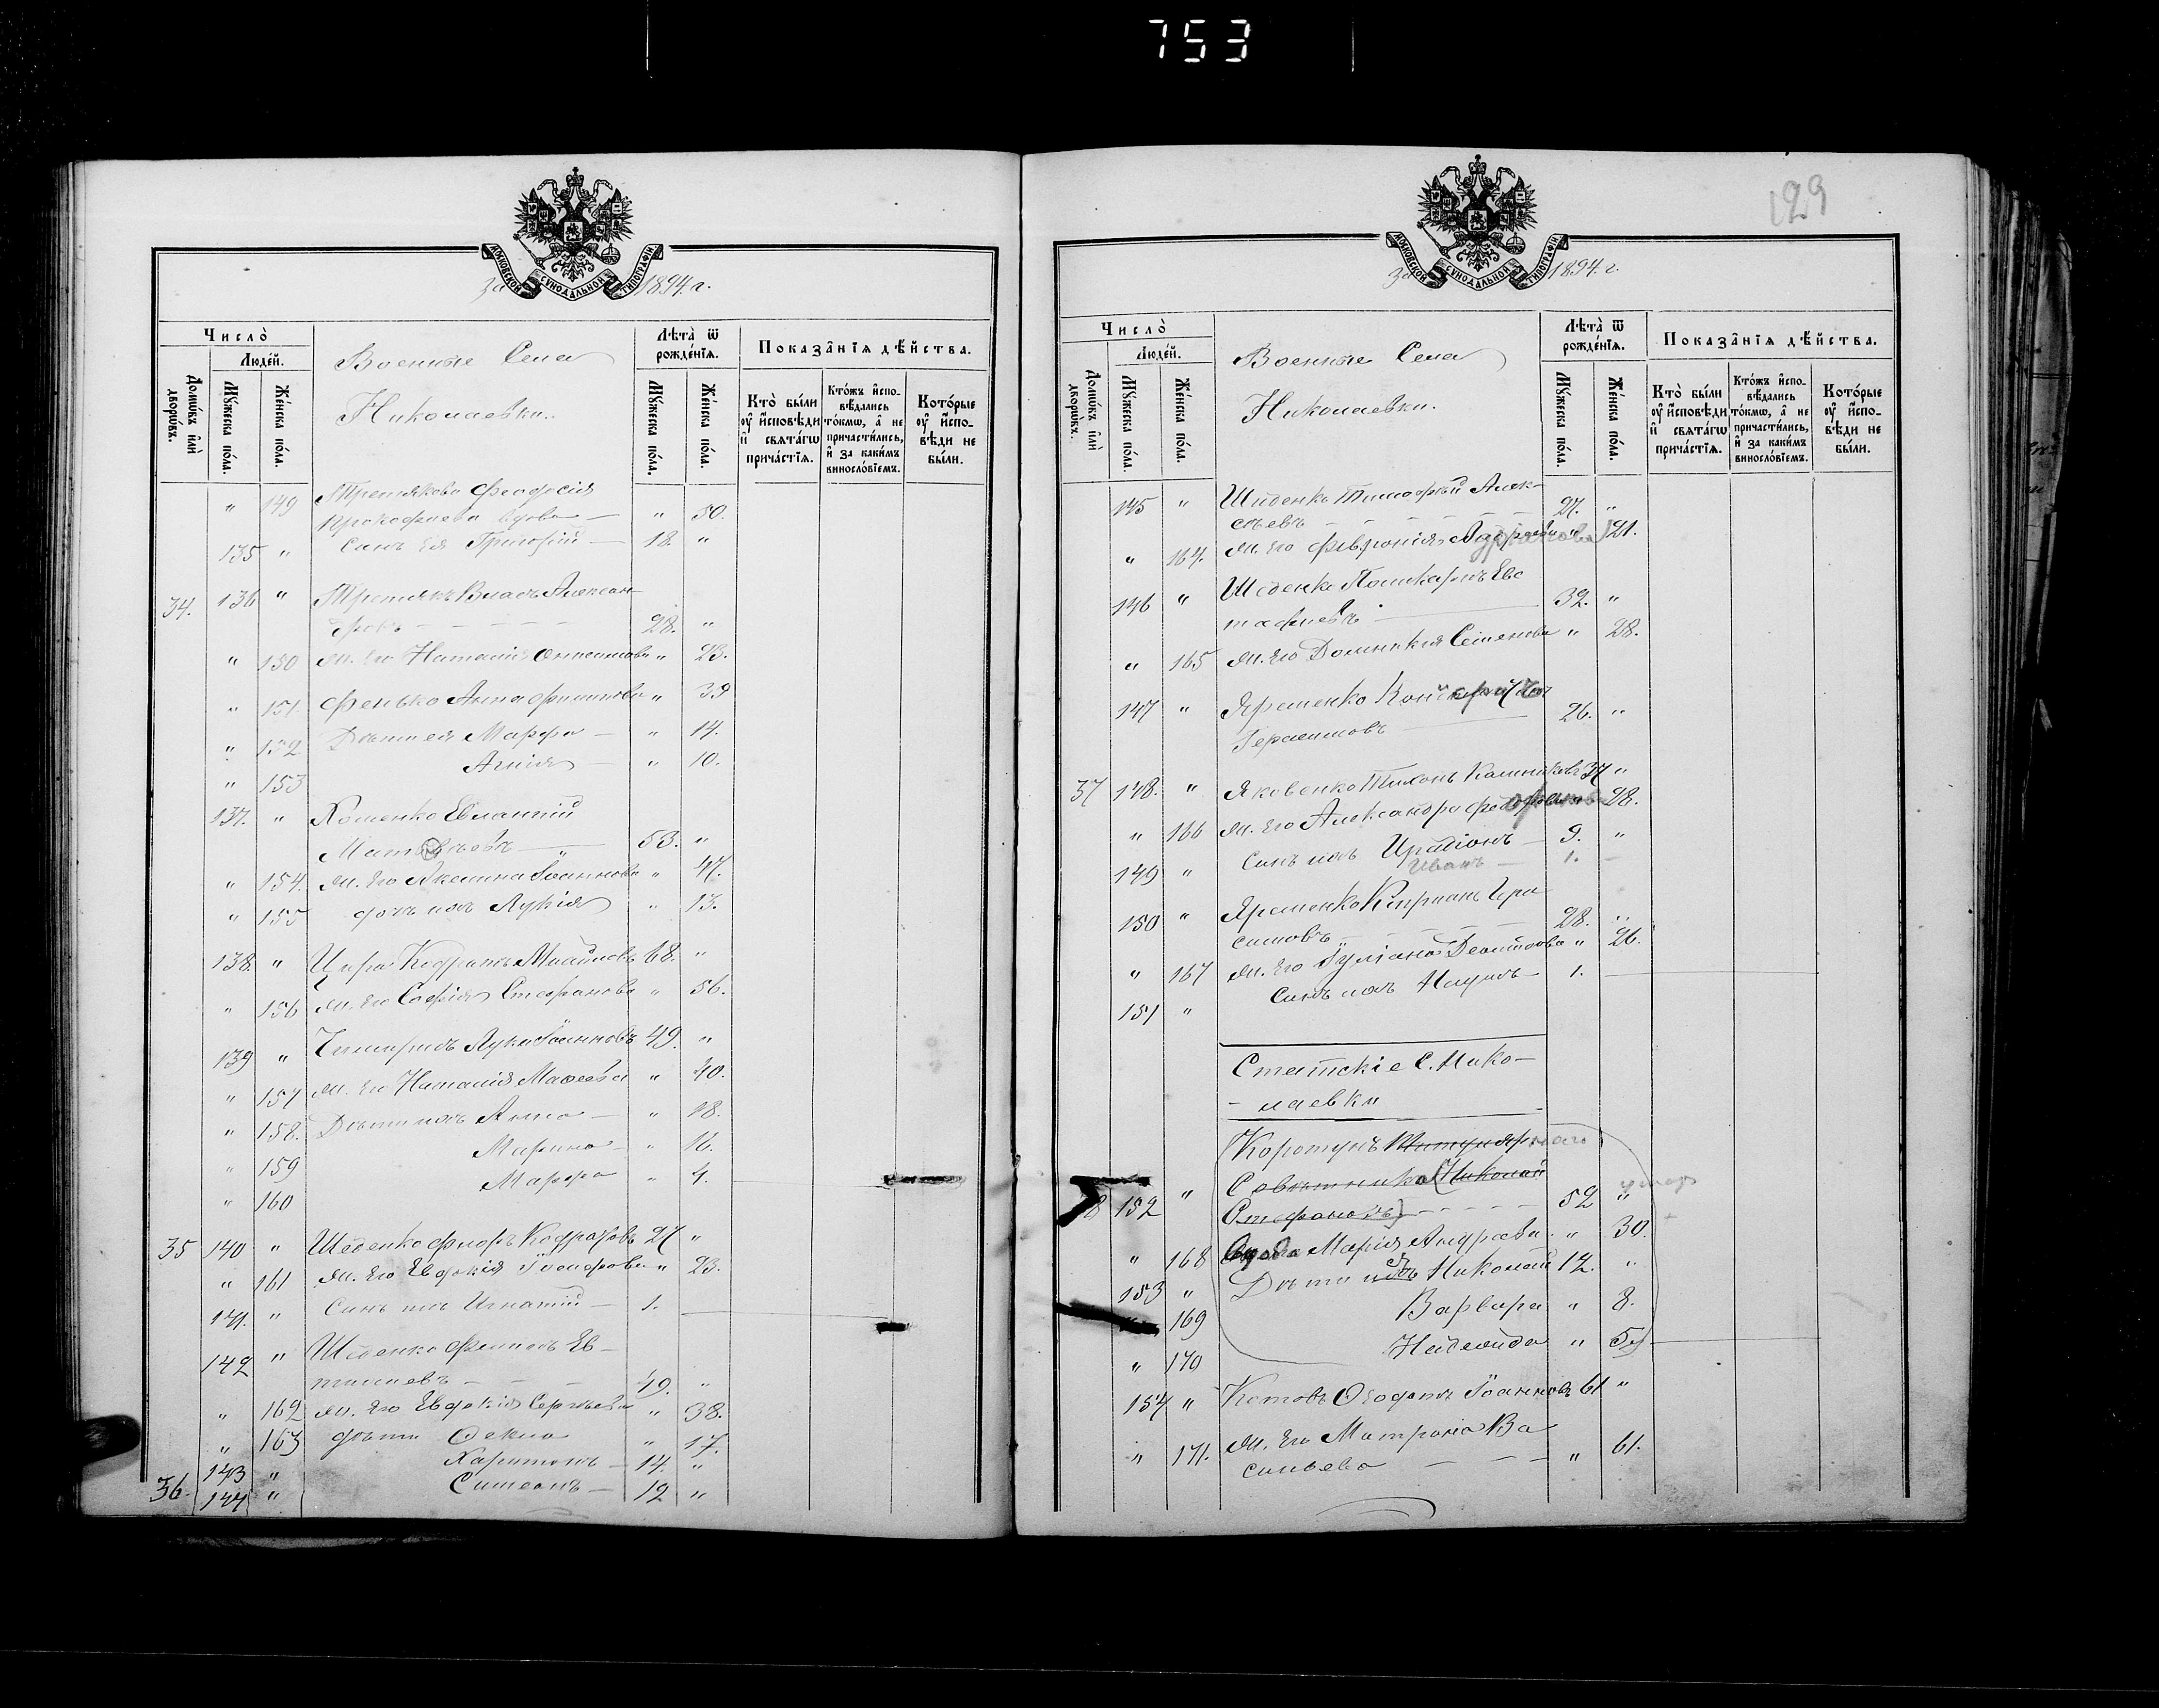 753
МОСКОВСКОЙ СѴНОДАЛЬНОЙ ТИПОГРАФІИ
За 1894 г.
Число̀
Людей.
Домѡвъ и҆лѝ дворѡвъ.
Мꙋжеска по́ла.
Же́нска по́ла.
Военные Села
Николаевки.
Лѣта̀ ѿ рожде́нїѧ.
Мꙋжеска по́ла.
Же́нска по́ла.
Показа̑нїѧ дѣ́йства.
Кто̀ бы́ли ᲂу҆ и҆сповѣди и҆ свѧта́гѡ прича́стїѧ.
Кто́жъ и҆спо- вѣдались то́кмѡ, а҆ не причасти́лись, и҆ за каки́мъ винослѻ́вїемъ.
Кото́рые ᲂу҆ и҆спо- вѣди не бы́ли.
" 149 Третьякова Феодосія
Прокофиева вдова — " 50.
135 " Сынъ ея Григорій — 18. "
34. 136 " Третьякъ Власъ Алексан-
дровъ — 28. "
" 150 Ж. Его Наталія Онисимова " 23.
" 151 Фенько Анна Филипова " 39
" 152 Дѣти ея Марфа — " 14.
" 153 Агнія — " 10.
137. " Хоменко Евлампій
Матвѣевъ — 53. "
" 154. Ж. Его Акелина Іоаннова " 47.
" 155 дочь ихъ Лукія " 13.
138. " Цира Кодратъ Михайловъ 68. "
" 156 Ж. Его Софія Стефанова " 56.
139 " Лука Іоанновъ 49. "
" 157 Ж. Его Наталія Моѳеева " 40.
" 158. Дѣти ихъ Анна — " 18.
" 159 Марина — " 16.
" 160 Марфа " 4.
35 140 " Шеденко Флоръ Кодратовъ 27 "
" 161 Ж. Его Евдокія Іосифова " 23.
141. " Сынъ ихъ Игнатій — 1.
142 " Шеденко Филипъ Ев-
49. "
" 162 Ж. Его Евдокія Сергѣева " 38.
" 163 дѣти Ѳекла " 17.
143 " Харитонъ — 14. "
36. 144 " Симеонъ — 12 "
129
МОСКОВСКОЙ СѴНОДАЛЬНОЙ ТИПОГРАФІИ
За 1894. г.
Число̀
Людей.
Домѡвъ и҆лѝ дворѡвъ.
Мꙋжеска по́ла.
Же́нска по́ла.
Военные Села
Николаевки.
Лѣта̀ ѿ рожде́нїѧ.
Мꙋжеска по́ла.
Же́нска по́ла.
Показа̑нїѧ дѣ́йства.
Кто̀ бы́ли ᲂу҆ и҆сповѣди и҆ свѧта́гѡ прича́стїѧ.
Кто́жъ и҆спо- вѣдались то́кмѡ, а҆ не причасти́лись, и҆ за каки́мъ винослѻ́вїемъ.
Кото́рые ᲂу҆ и҆спо- вѣди не бы́ли.
145 " Шиденко Тимофей Алек-
сѣевъ — 27. "
" 164. Ж. Его Февронія 21.
146 " Шеденко Поликарпъ Евс
тафиевъ — 32. "
" 165 Ж. Его Домникія Семенова " 28.
147 " Яременко
Герасимовъ 26. "
37 148. " Яковенко Тихонъ Калиниковъ 37 "
" 166 Ж. Его Александра 28.
149 " Сынъ ихъ Иродіонъ — 9. "
Иванъ — 1. —
150 " Яременко Кипріанъ Гера
симовъ 28. "
" 167 Ж. Его Іуліана " 26.
151 " Сынъ ихъ Наумъ 1.
Статскіе С. Нико-
лаевки
Коротунъ Титулярнаго
Совѣтника (Николай
152 " Стефановъ) — 52 "
умер
" 168 Вдова Мария Андреева " 30.
153 " Дѣти Николай 12. "
169 Варвара " 8.
" 170 Надежда " 5
154 " Котовъ Ѳеодотъ Іоанновъ 61 "
" 171. Ж. Его Матрона Ва
сильева — " 61.